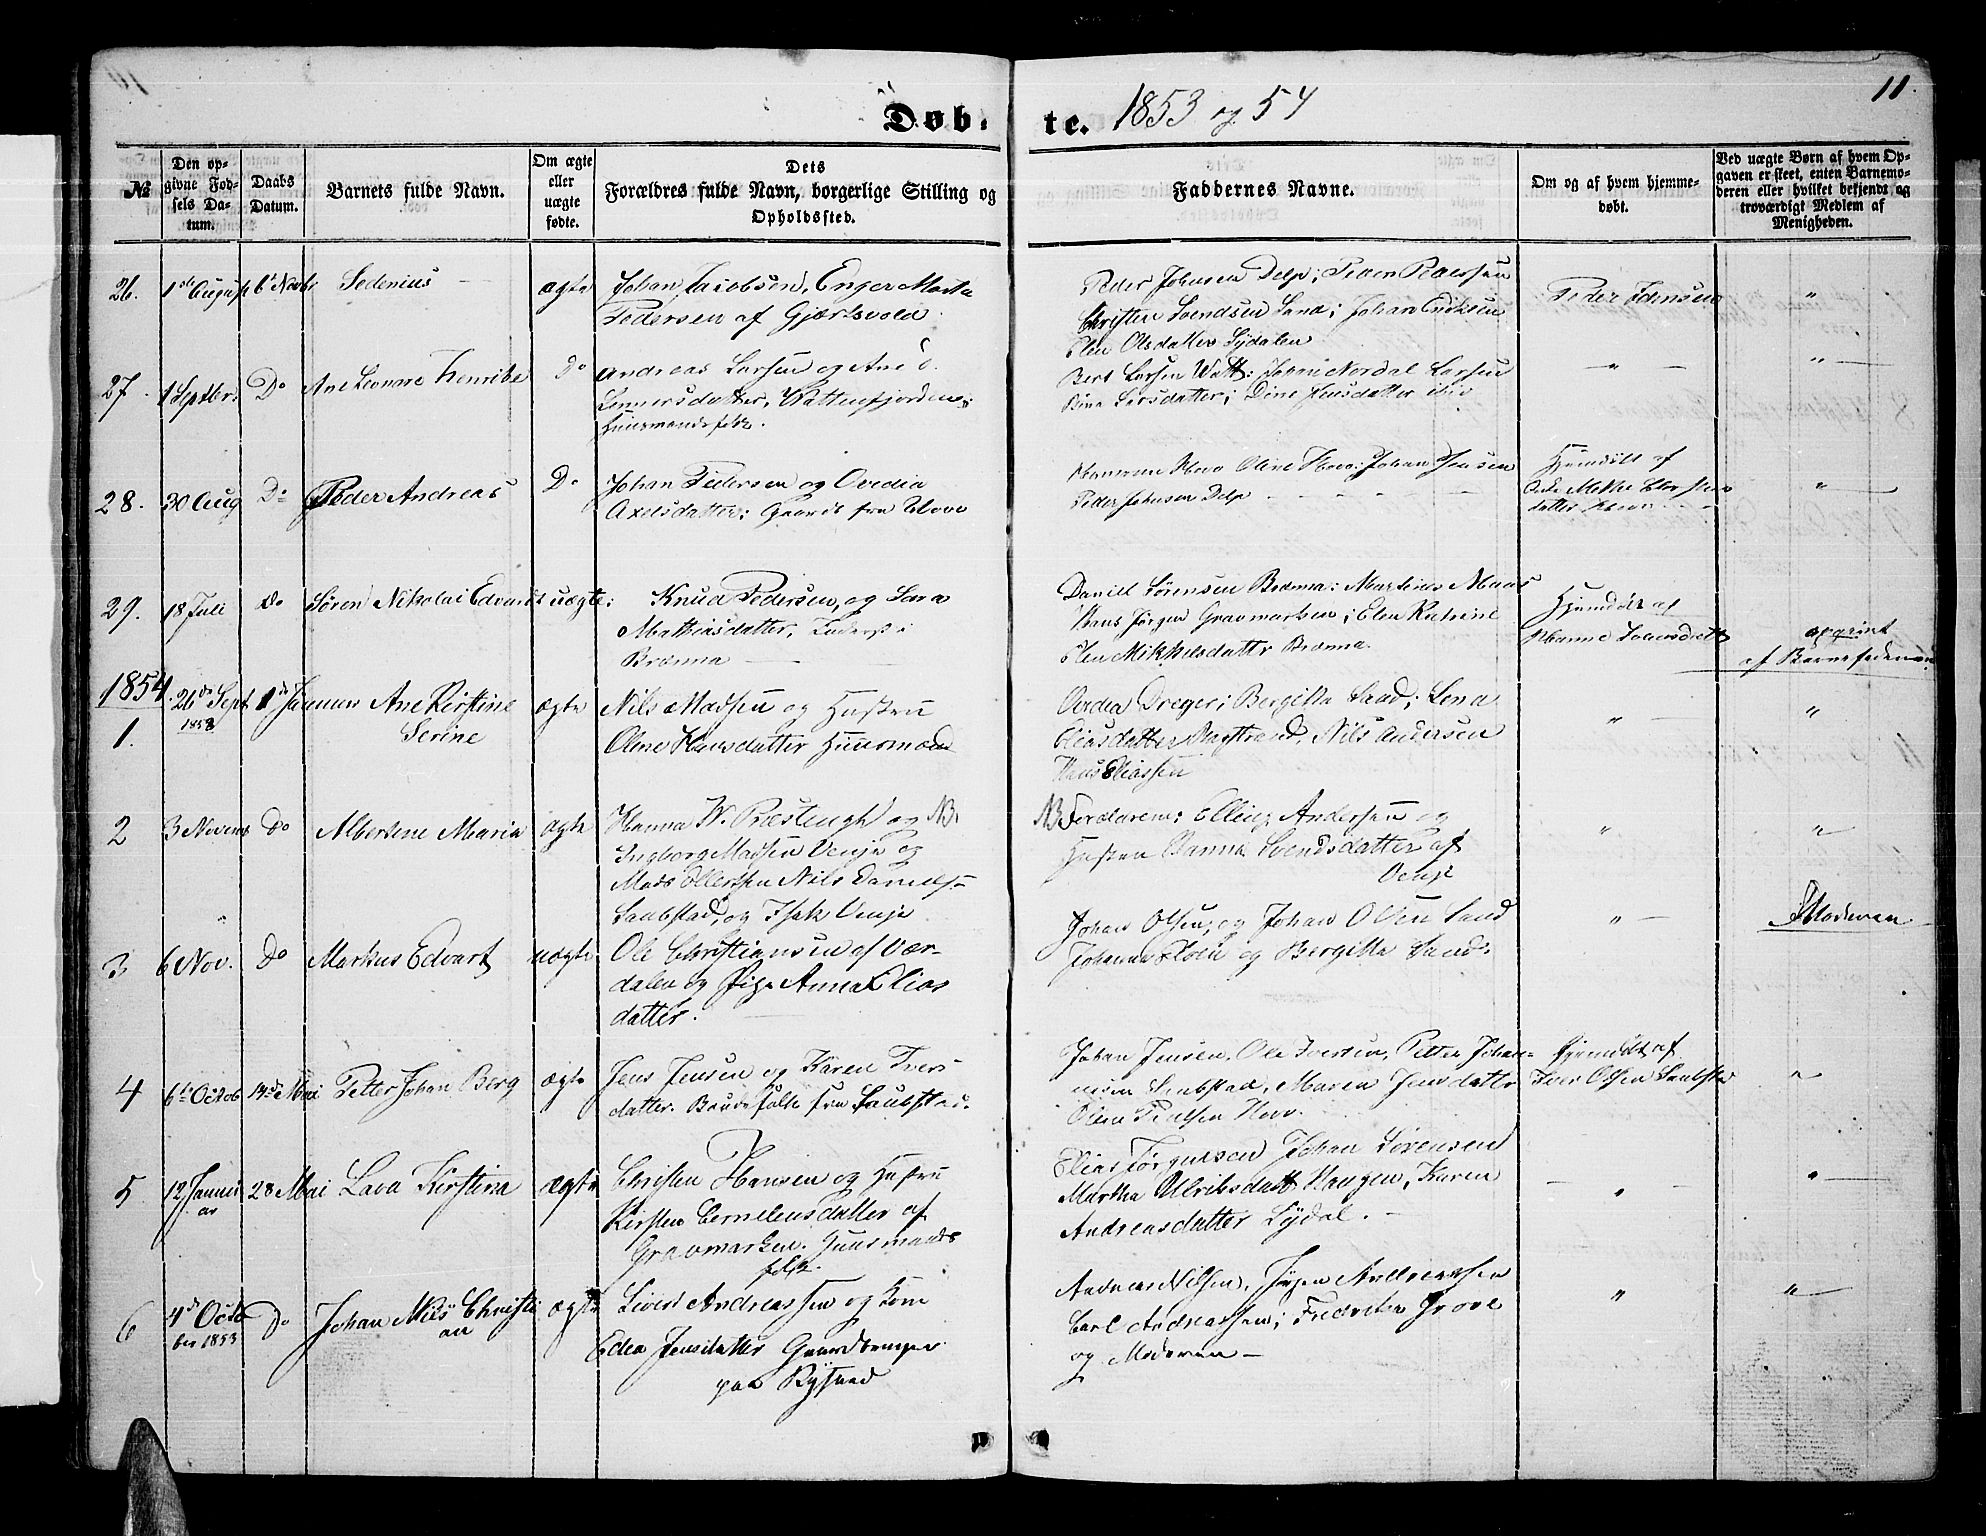 11.
Døb- te. 1853 og 54
№
Den opgivne Fødsels Datum.
Daabs Datum.
Barnets fulde Navn.
Om ægte eller uægte fødte.
Dets Forældres fulde Navn, borgerlige Stilling og Opholdssted.
Faddernes Navne.
Om og af hvem hjemmedøbt.
Ved uægte Børn af hvem Opgaven er skeet, enten Barnemoderen eller hvilket bekjendt og troværdigt Medlem af Menigheden.
26. 1ste August 6te Novbr Sedenius — ægte Johan Jacobsen, Enger Marta
Pedersen af Gjærtsvold.
Peder Johnsen Delp; Peder Pedersen
Christen Svendsen Sand; Johan Eriksen
Elen Olsdatter Lydalen
Peder Jensen "
27. 1 Septbr. Do Ane Leonare Henrike Do Andreas Larsen og Ane
Lennersdatter, Vattenfjorden;
Huusmandsfolk.
Bert Larsen Watt; Johan Nordal Larsen
Bina Larsdatter; Dine Hansdatter ibid
" — " —
28. 30 Aug Do Peder Andreas Do Johan Pedersen og Ovedia
Axelsdatter; Gaardf. fra Hove
Hove Oline Hove; Johan Jensen
Peder Johnsen Delp — — — —
Hjemdøbt af
Mette
datter
" —
29. 18 Juli do Søren Nikolai Edvardt uægte: Knud Pedersen, og Sara
Mathiasdatter,
Brænna — —
Daniel Sørensen Brænna; Martinus Maas
Hans Jørgen Gravmarken; Elen Katrine
Elen Mikkelsdatter Brænna.
Hjemdøbt af
Hanne
opgivet
af Barnefaderen
1854.
1. 26de Sept. 1853 1de Januar Ane Kirstine
Serine
ægte Nils Madsen og Hustru
Olene Hansdatter Huusmand
Ovedia Dreyer; Bergitta Sand; Lena
Eliasdatter Nils Andersen
Hans Eliassen
" — "
2 3 Novemb Do Albertene Maria ægte Hanna W. Præstengh og NB.
Ingborg Madsen Venje og
Mads Ellertsen Nils Daniels-
Saubstad, og Isak Venje.
NB Forældrene: Elling Andersen og
Hustru Hanna Svendsdatter af
Venje
" " —
3 6 Nov. Do Markus Edvart uægte Ole Christiansen af Vær-
dalen og Pige Anna Elias
datter.
Johan Olsen; og Johan Olsen Sand
Johanna Olsen og Bergitta Sand.
" — Moderen
4 6te Octob 14de Mai Petter Johan Berg ægte Jens Jensen og Karen Iver-
datter. Bondefolk fra Saubstad.
Johan Jensen, Ole Iversen, Petter Johan-
nisen Saubstad, Maren Jensdatter
Olena Nielsen Hove.
Hjemdøbt af
Iver Olsen Saubstad
" —
5 12 Janu-
ar 28 Mai Lava Kirstina ægte Christen Hansen og Hustru
Kirsten Corneleusdatter af
Gravmarken. Huusmands
folk.
Elias Jørgensen Johan Sørensen
Martha Ulriksdatt Haugen, Karen
Andreasdatter Lydal. —
— " "—
6 4de Octo
ber 1853 Do Johan Nils Christi
an
ægte Sivert Andreassen og Kone
Edea Jensdatter Gaardbruger
paa Rystad
Andreas Nilsen, Jørgen Andreassen
Carl Andreassen; Fredrikke Grove
og Moderen —
" " —